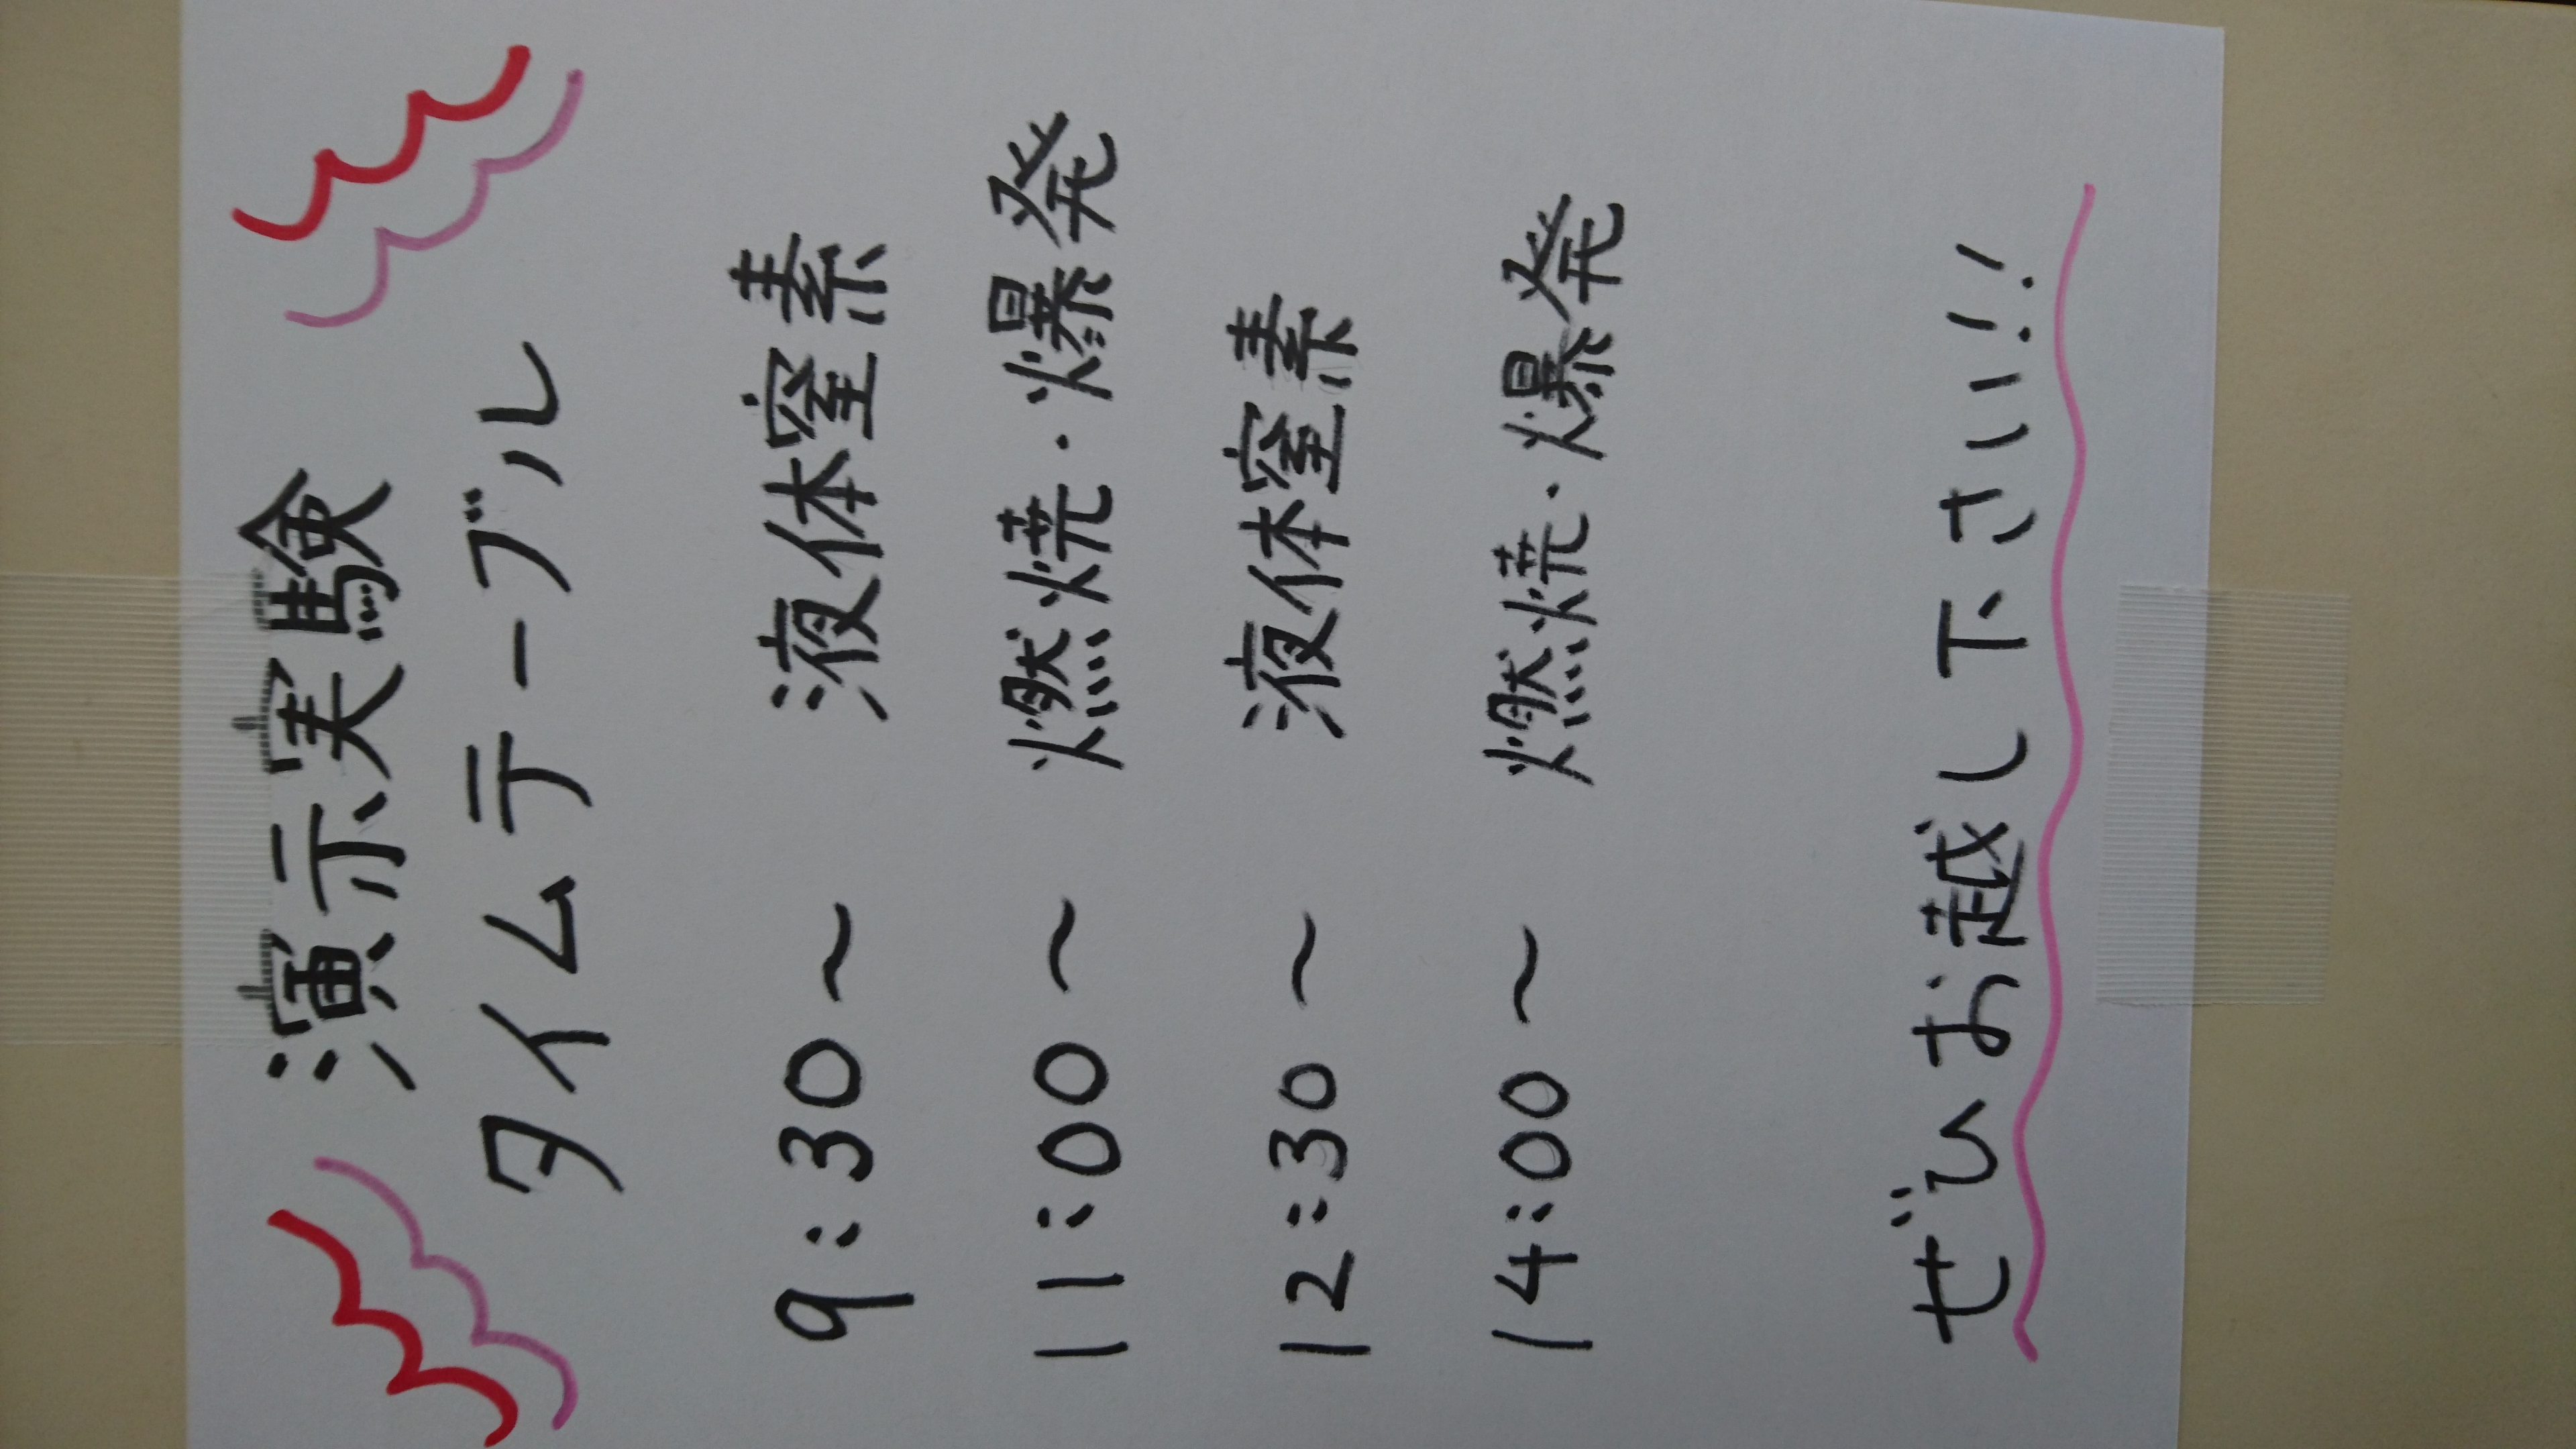 演示実験
タイムテーブル
9:30～ 液体窒素
11:00～ 燃焼・爆発
12:30～ 液体窒素
14:00～ 燃焼・爆発
ぜひお越し下さい!!